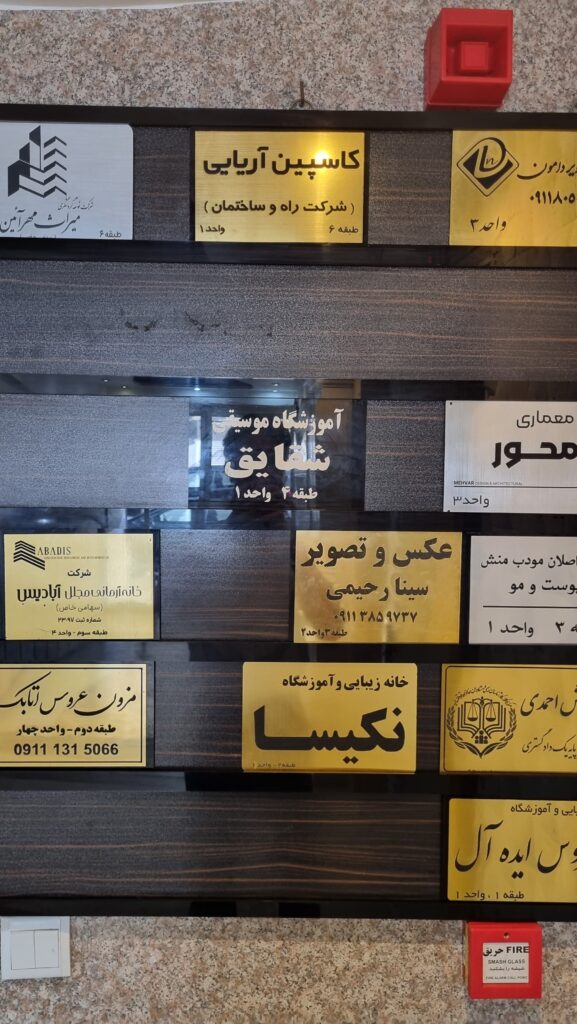 میراث مهرآئین
طبقه ۶
کاسپین آریایی
( شرکت راه و ساختمان )
طبقه ۶
واحد ۱
دامون
۰۹۱۱۸۰۵
واحد ۳
آموزشگاه موسیقی
شقایق
طبقه ۴ واحد ۱
معماری
محور
MEHVAR
واحد ۳
ABADIS
شرکت
خانه آرمانی مجلل آبادیس
(سهامی خاص)
شماره ثبت ۲۳۹۷
طبقه سوم - واحد ۴
عکس و تصویر
سینا رحیمی
۰۹۱۱ ۳۸۵ ۹۷۳۷
طبقه ۳ واحد ۲
اصلان مودب منش
پوست و مو
۳ واحد ۱
مزون عروس اتابک
طبقه دوم - واحد چهار
0911 131 5066
خانه زیبایی و آموزشگاه
نکیسا
طبقه ۲ - واحد ۱
احمدی
پایه یک دادگستری
یی و آموزشگاه
وس ایده آل
طبقه ۱ ، واحد ۱
حریق FIRE
SMASH GLASS
شیشه را بشکنید
FIRE ALARM CALL POINT